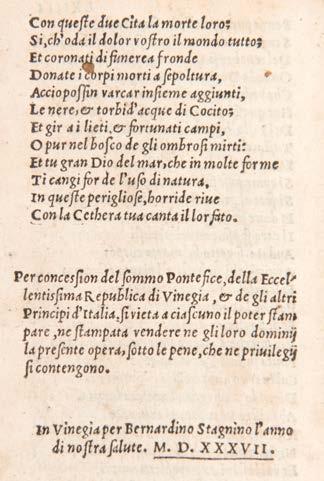 Con queste due Cita la morte loro;
Si, ch'oda il dolor vostro il mondo tutto;
Et coronati di funerea fronde
Donate i corpi morti a sepoltura,
Accio possin varcar insieme aggiunti,
Le nere, & torbid'acque di Cocito;
Et gir a i lieti, & fortunati campi,
O pur nel bosco de gli ombrosi mirti:
Et tu gran Dio del mar, che in molte forme
Ti cangi for de l'uso di natura,
In queste perigliose, horride riue
Con la Cethera tua canta il lor fato.
Per concession del sommo Pontefice, della Eccel-
lentissima Republica di Vinegia, & de gli altri
Principi d'Italia, si vieta a ciascuno il poter stam
pare, ne stampata vendere ne gli loro dominij
la presente opera, sotto le pene, che ne priuilegij
si contengono.
In Vinegia per Bernardino Stagnino l'anno
di nostra salute. M. D. XXXVII.